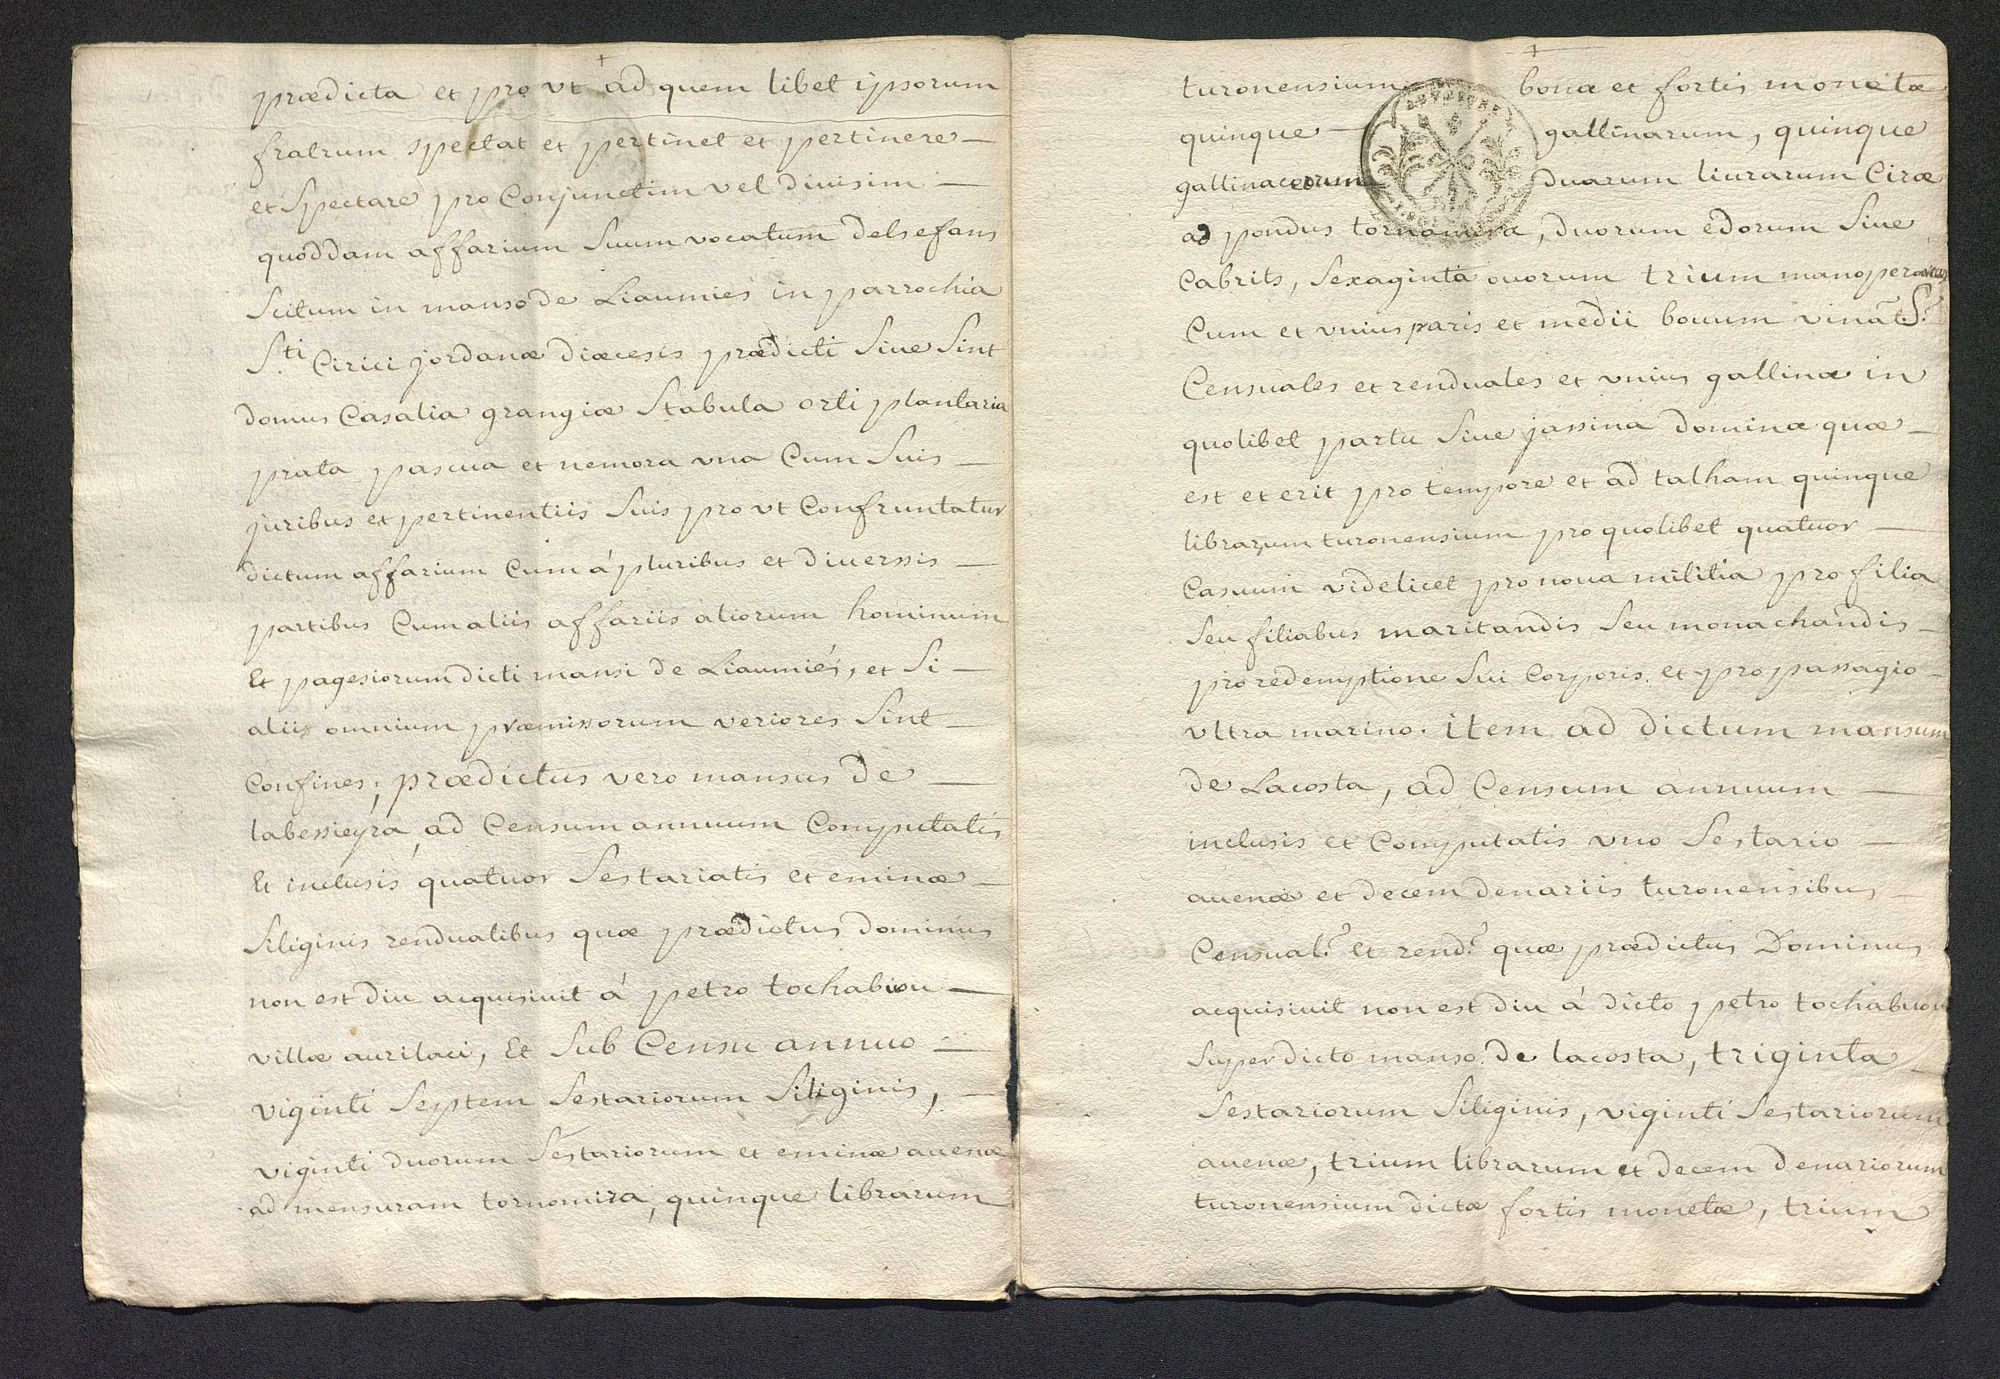 prædicta et pro vt ad quem libet ipsorum
fratrum spectat et pertinet et pertinere
et Spectare pro Conjunctim vel divisim
quoddam affarium Suum vocatum delsefans
Scitum in manso de Liaumies in parrochia
S.ti Cirici jordanæ diœcesis prædicti Siue Sint
domus Casalia grangiæ Stabula orti plantaria
prata pascua et nemora vna Cum Suis
juribus et pertinentiis Suis pro vt Confruntatur
dictum affarium Cum á pluribus et diuersis
partibus Cum aliis affariis aliorum hominum
Et pagesiorum dicti mansi de Liaumiés, et Si
aliis omnium præmissorum veriores Sint
Confines; prædictus vero mansus de
labessieyra, ad Censum annuum Computatis
Et inclusis quatuor Sestariatis et eminæ
Siliginis rendualibus quæ prædictus dominus
non est diu acquisiuit á petro tochabiou
villæ aurilaci, Et Sub Censu annuo
viginti Septem Sestariorum Siliginis,
viginti duorum Sestariorum et eminæ auenæ
ad mensuram tornomira, quinque librarum
turonensium bonæ et fortis monetæ
quinque gallinarum, quinque
gallinaceorum duarum liurarum Ciræ
ad pondus tornamira, duorum edorum Siue
Cabrits, Sexaginta ouorum trium manoperarum
Cum et vnius paris et medii bouum vinat. S.
Censuales et renduales et vnius gallinæ in
quolibet partu Siue jassina dominæ quæ
est et erit pro tempore et ad talham quinque
librarum turonensium pro quolibet quatuor
Casuum videlicet pro noua militia pro filia
Seu filiabus maritandis Seu monachandis
pro redemptione Sui Corporis et pro passagio
vltra marino. item ad dictum mansum
de Lacosta, ad Censum annuum
inclusis et Computatis vno Sestario
auenæ et decem denariis turonensibus
Censual. et rend. quæ prædictus Dominus
acquisiuit non est diu á dicto petro tochabuou
Super dicto manso de lacosta, triginta
Sestariorum Siliginis, viginti Sestariorum
auenæ, trium librarum et decem denariorum
turonensium dictæ fortis monetæ, trium